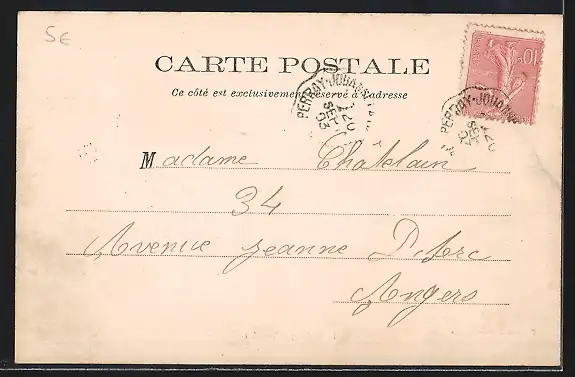 5€
CARTE POSTALE
Ce côté est exclusivement réservé à l'adresse
PERRAY-JOUANNET
20
SEPT
03
10
PERRAY-JOUANNET
20
SEPT
03
Madame Châtelain
34
Avenue Jeanne D'Arc
Angers